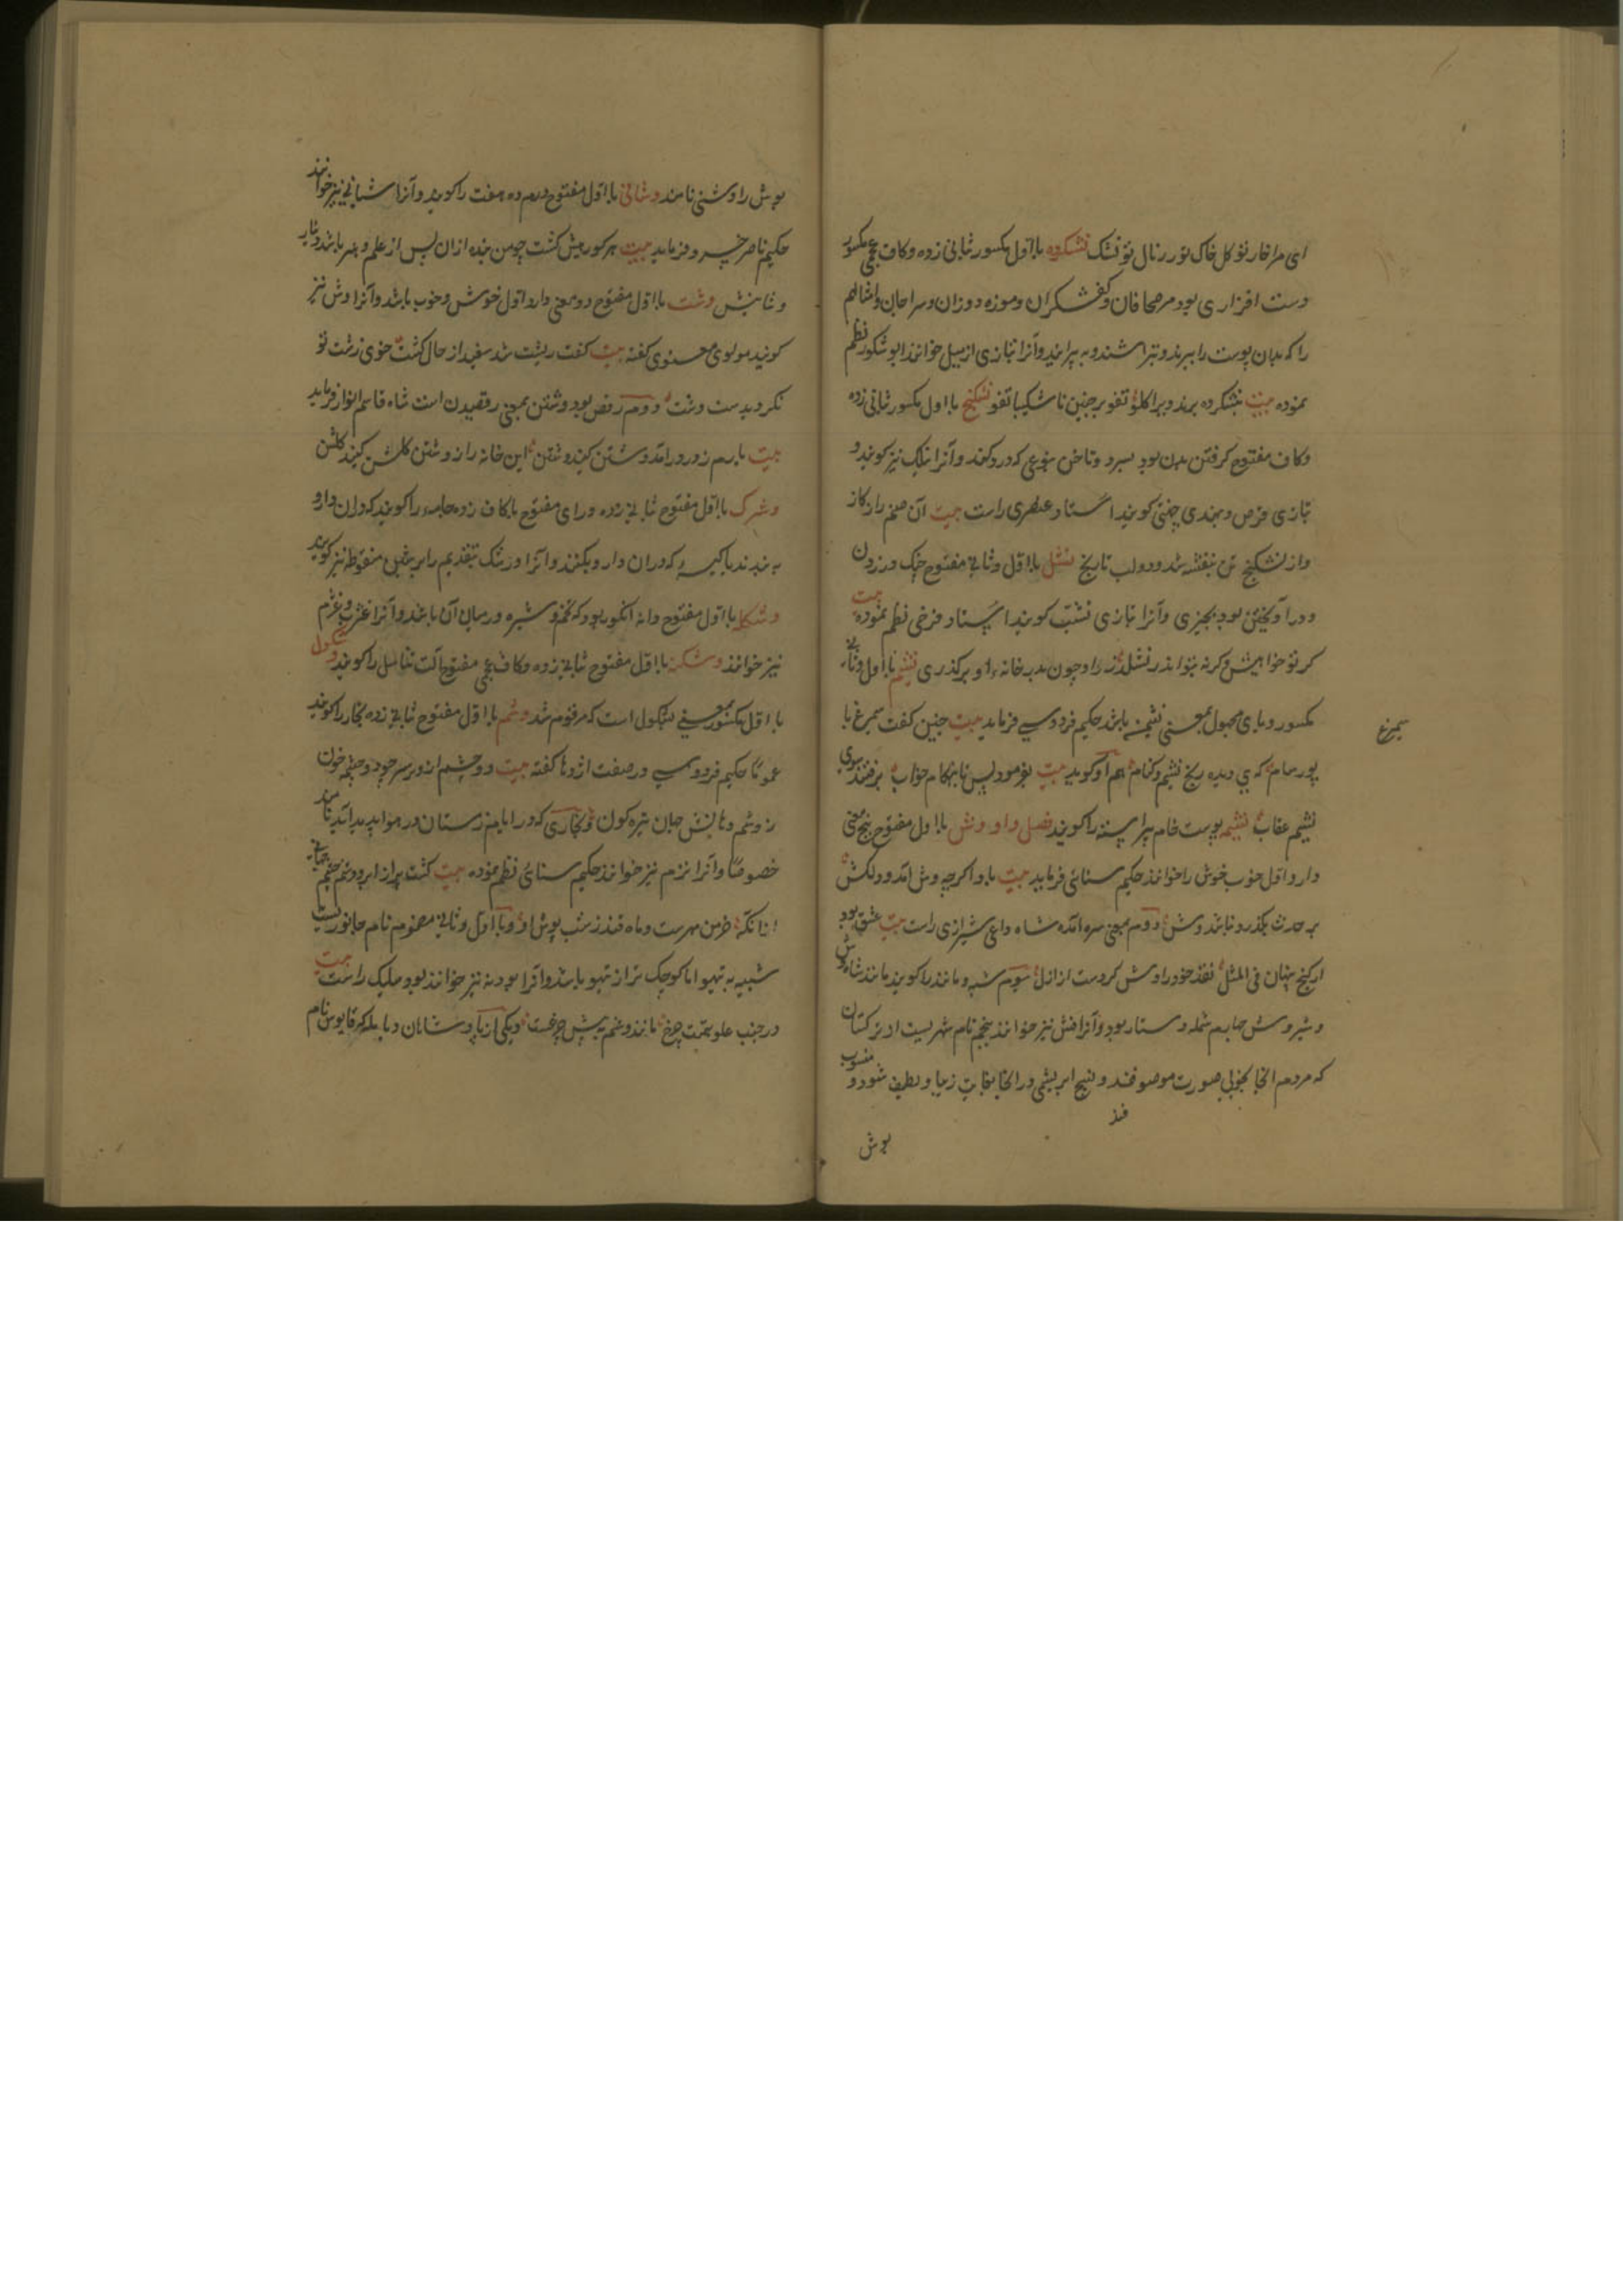 ای مرا خار تو کل خاک تو زر نال تو نشک نشکرده بااول مکسور ثبانی زده وکاف عجمی مکسور
دست افزاری بود مر صحافان وکفشکران وموزه دوزان وسراجان وامثالهم
را که بدان پوست را ببرند وبتراشند و به پرایند وآنرا بتازی ازمیل خوانند ابو شکور نظم
نموده بیت بشکرده برند ویرا کلو تفو بر چنین ناشکیبا تفو نشکنج بااول مکسور ثبانی زده
وکاف مفتوح کرفتن بدن بود بسر دو ناخن بنوعی که درد کند وآنرا نیز کویند و
بتازی قرص وبهندی چتنی کویند استاد عنصری راست بیت آن صنم را ز کاز
واز نشکنج تن بنفشه شد ودو لب نارنج نشل بااول وثانی مفتوح چنک در زدن
ودر آویختن بود بچیزی وآنرا بتازی تشبث کویند استاد فرخی نظم نموده بیت
کر تو خواهیش وکر نه بتو اندر نشلد زر او چون بدر خانه او بر کذری نشیم بااول وثانی
مکسور ویای مجهول بمعنی نشیمن باشد حکیم فردوسی فرماید بیت چنین کفت سیمرغ با
سیمرغ
پور سام که ای دیده رنج نشیم وکنام هم او کوید بیت بفرمود پس تا بهنکام خواب برفتند سوی
نشیم عقاب نشیمه پوست خام پیراسته را کویند فصل واو وش بااول مفتوح پنج معنی
دارد اول خوب خوش را خوانند حکیم سنائی فرماید بیت باد اکرچه وش آمد ودلکش
بر حدث بکذرد نباشد وش دوم بمعنی سره آمده شاه داعی شیرازی راست بیت عشق بود
ار کنج نهان فی المثل نقد خود را وش کردست از ازل سوم شبه ومانند را کویند مانند شاه وش
وشیر وش چهارم شمله دستار بود وآنرا فش نیز خوانند پنجم نام شهریست از ترکستان
که مردم آنجا بخوبی صورت موصوفند ونسیج ابریشمی در آنجا بغایت زیبا ولطیف شود و منسوب
فند
بوش
بوش را وشی نامند وشانی بااول مفتوح درم ده هفت را کویند وآنرا شیانی نیز خوانند
حکیم ناصر خسرو فرماید بیت
وشانیش وشت بااول مفتوح دو معنی دارد اول خوش وخوب باشد وآنرا وش نیز
کویند مولوی معنوی کفته بیت کفت ریشت شد سفید از حال کشت خوی زشت تو
نکردیدست وشت دوم رقص بود وشتن بمعنی رقصیدن است شاه قاسم انوار فرماید
بیت یارم ز در درآمد وشتن کنید وشتن این خانه را ز وشتن کلشن کنید کلشن
وشرک بااول مفتوح ثبانی زده ورای مفتوح بکاف زده جامه را کویند که در آن دارو
به بندند یا کیسه که در آن دارو بکنند وآنرا ورشک بتقدیم را بر شین منقوطه نیز کویند
وشکله بااول مفتوح دانه انکور بود که تخم وشیره در میان آن باشد وآنرا غژب وغژم
نیز خوانند وشکنه بااول مفتوح ثبانی زده وکاف عجمی مفتوح آلت تناسل را کویند وشکول
بااول مکسور بمعنی بشکول است که مرقوم شد وشم بااول مفتوح ثبانی زده بخار را کویند
عموما حکیم فردوسی در صفت اژدها کفته بیت دو چشم از در سر چو دو چشمه خون
ز وشم دهانش جهان تیره کون وبخاری که در ایام زمستان در هوا پدید آید نامند
خصوصا وآنرا نزم نیز خوانند حکیم سنائی نظم نموده بیت کشت پر از ابر ووشم چشم جهانی
از آنکه خرمن مهرست وماه قندز شب پوش او وبااول وثانی مضموم نام جانوریست
شبیه به تیهو اما کوچک تر از تیهو باشد وآنرا بودنه نیز خوانند بو وملیک راست بیت
در جنب علو همتت چرخ مانند وشم پیش چرغست ویکی از پادشاهان دیالمه که قابوس نام